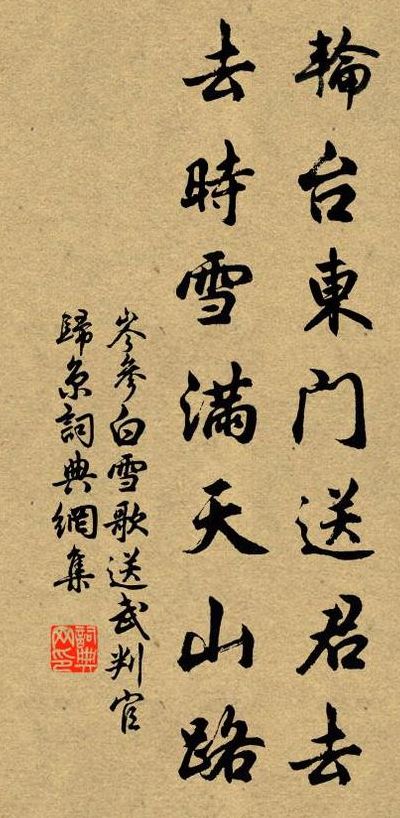 輪台東門送君去
去時雪滿天山路
岑參白雪歌送武判官
歸京詞典網集
詞典網印